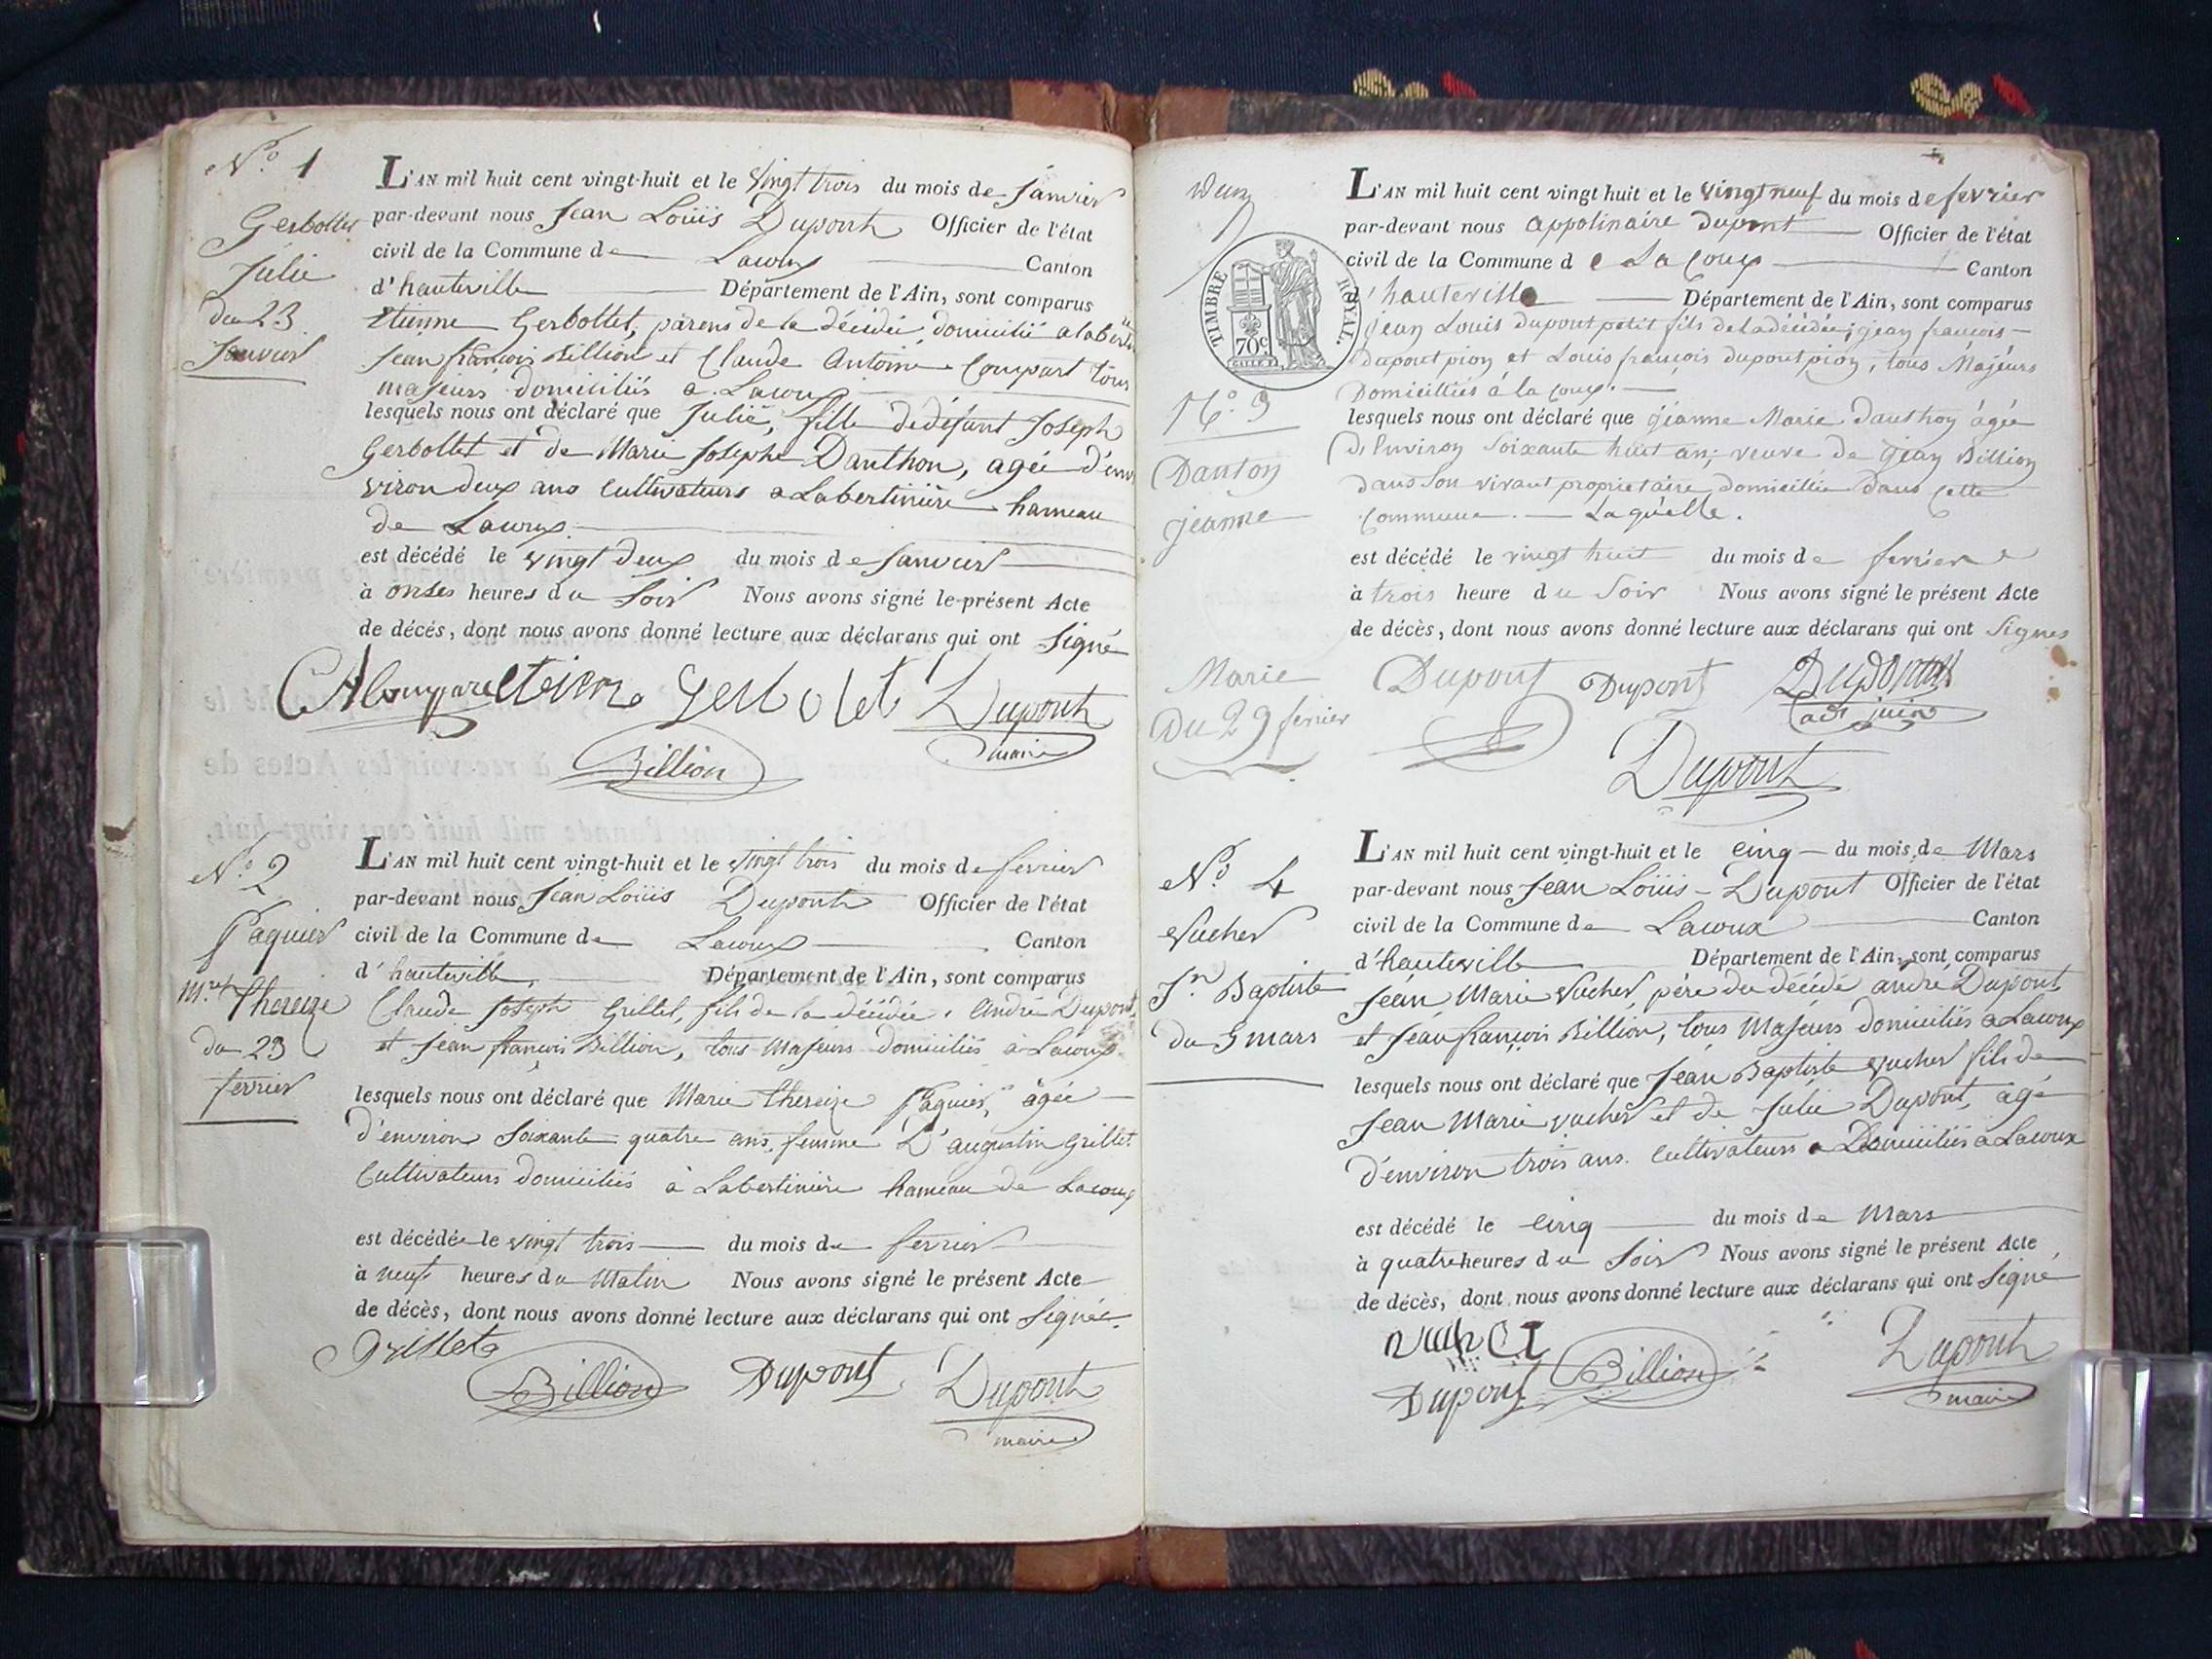 N.o 1
Gerbollet
Julie
du 23
Janvier
L'AN mil huit cent vingt-huit et le vingt trois du mois de Janvier
par-devant nous Jean Loüis Dupont Officier de l'état
civil de la Commune de Lacoux Canton
d'hauteville Département de l'Ain, sont comparus
Etienne Gerbollet, parens de la décédée domicilié a labertinière
Jean françois Billion et Claude Antoine Compart tous
majeurs domiciliés a Lacoux
lesquels nous ont déclaré que Julie, fille de défunt Joseph
Gerbollet et de Marie Josephe Danthon, agée d'en
viron deux ans cultivateurs a Labertinière hameau
de Lacoux
est décédé le vingt deux du mois de Janvier
à onses heures du Soir Nous avons signé le présent Acte
de décés, dont nous avons donné lecture aux déclarans qui ont Signé
etienne Gerbolet Dupont
maire
Billion
N.o 2
Paquier
M.rie Thereize
du 23
fevrier
L'AN mil huit cent vingt-huit et le vingt trois du mois de fevrier
par-devant nous Jean Loüis Dupont Officier de l'état
civil de la Commune de Lacoux Canton
d'hauteville Département de l'Ain, sont comparus
Claude Joseph Grillet, fils de la décédée, André Dupont,
et Jean françois Billion, tous Majeurs domiciliés à Lacoux
lesquels nous ont déclaré que Marie thereize Paquier, âgée
d'environ Soixante quatre ans, femme D'augustin Grillet
Cultivateurs domiciliés à Labertinière hameau de Lacoux
est décédée le vingt trois du mois de fevrier
à neuf heures du Matin Nous avons signé le présent Acte
de décès, dont nous avons donné lecture aux déclarans qui ont Signés
Grillet
Billion Dupont Dupont
maire
Deux
TIMBRE ROYAL.
70c
N.o 3
Danton
jeanne
Marie
Du 29 fevrier
L'AN mil huit cent vingt huit et le vingt neuf du mois de fevrier
par-devant nous appolinaire dupont Officier de l'état
civil de la Commune de La Coux Canton
d'hauteville Département de l'Ain, sont comparus
jean Louis dupont petit fils de la décédée, jean françois
dupont pion et Louis françois dupont pion, tous Majeurs
Domiciliés á la coux.
lesquels nous ont déclaré que jéanne Marie danthon ágée
d'Environ Soixante huit an, veuve de jean Billion
dans son vivant proprietaire domicilliée dans cette
commune. Laquelle.
est décédé le vingt huit du mois de fevrier
à trois heure du Soir Nous avons signé le présent Acte
de décès, dont nous avons donné lecture aux déclarans qui ont Signés
Dupont Dupont Dupont
Dupont
N.o 4
Vucher
J.n Baptiste
du 5 mars
L'AN mil huit cent vingt-huit et le cinq du mois de Mars
par-devant nous Jean Loüis Dupont Officier de l'état
civil de la Commune de Lacoux Canton
d'hauteville Département de l'Ain, sont comparus
Jéan Marie Vucher, père du décédé andré Dupont
et Jéan françois Billion, tous Majeurs domiciliés à Lacoux
lesquels nous ont déclaré que Jéan Baptiste Vucher fils de
Jean Marie vucher et de Julie Dupont, agé
d'environ trois ans. Cultivateurs Domiciliés a Lacoux
est décédé le cinq du mois de Mars
à quatre heures du Soir Nous avons signé le présent Acte
de décès, dont nous avons donné lecture aux déclarans qui ont Signé
Dupont Billion Dupont
maire